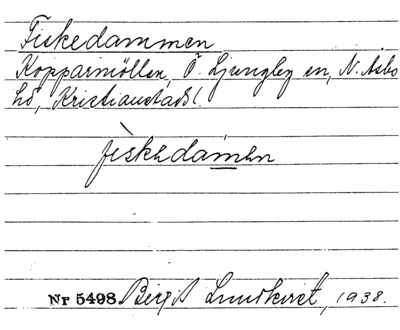 Fiskedammen
Kopparmöllan, Ö. Ljungby sn, N. Åsbo
hd, Kristianstads l.
fìskedamen
Nr 5498 Birgit Lundkvist, 1938.